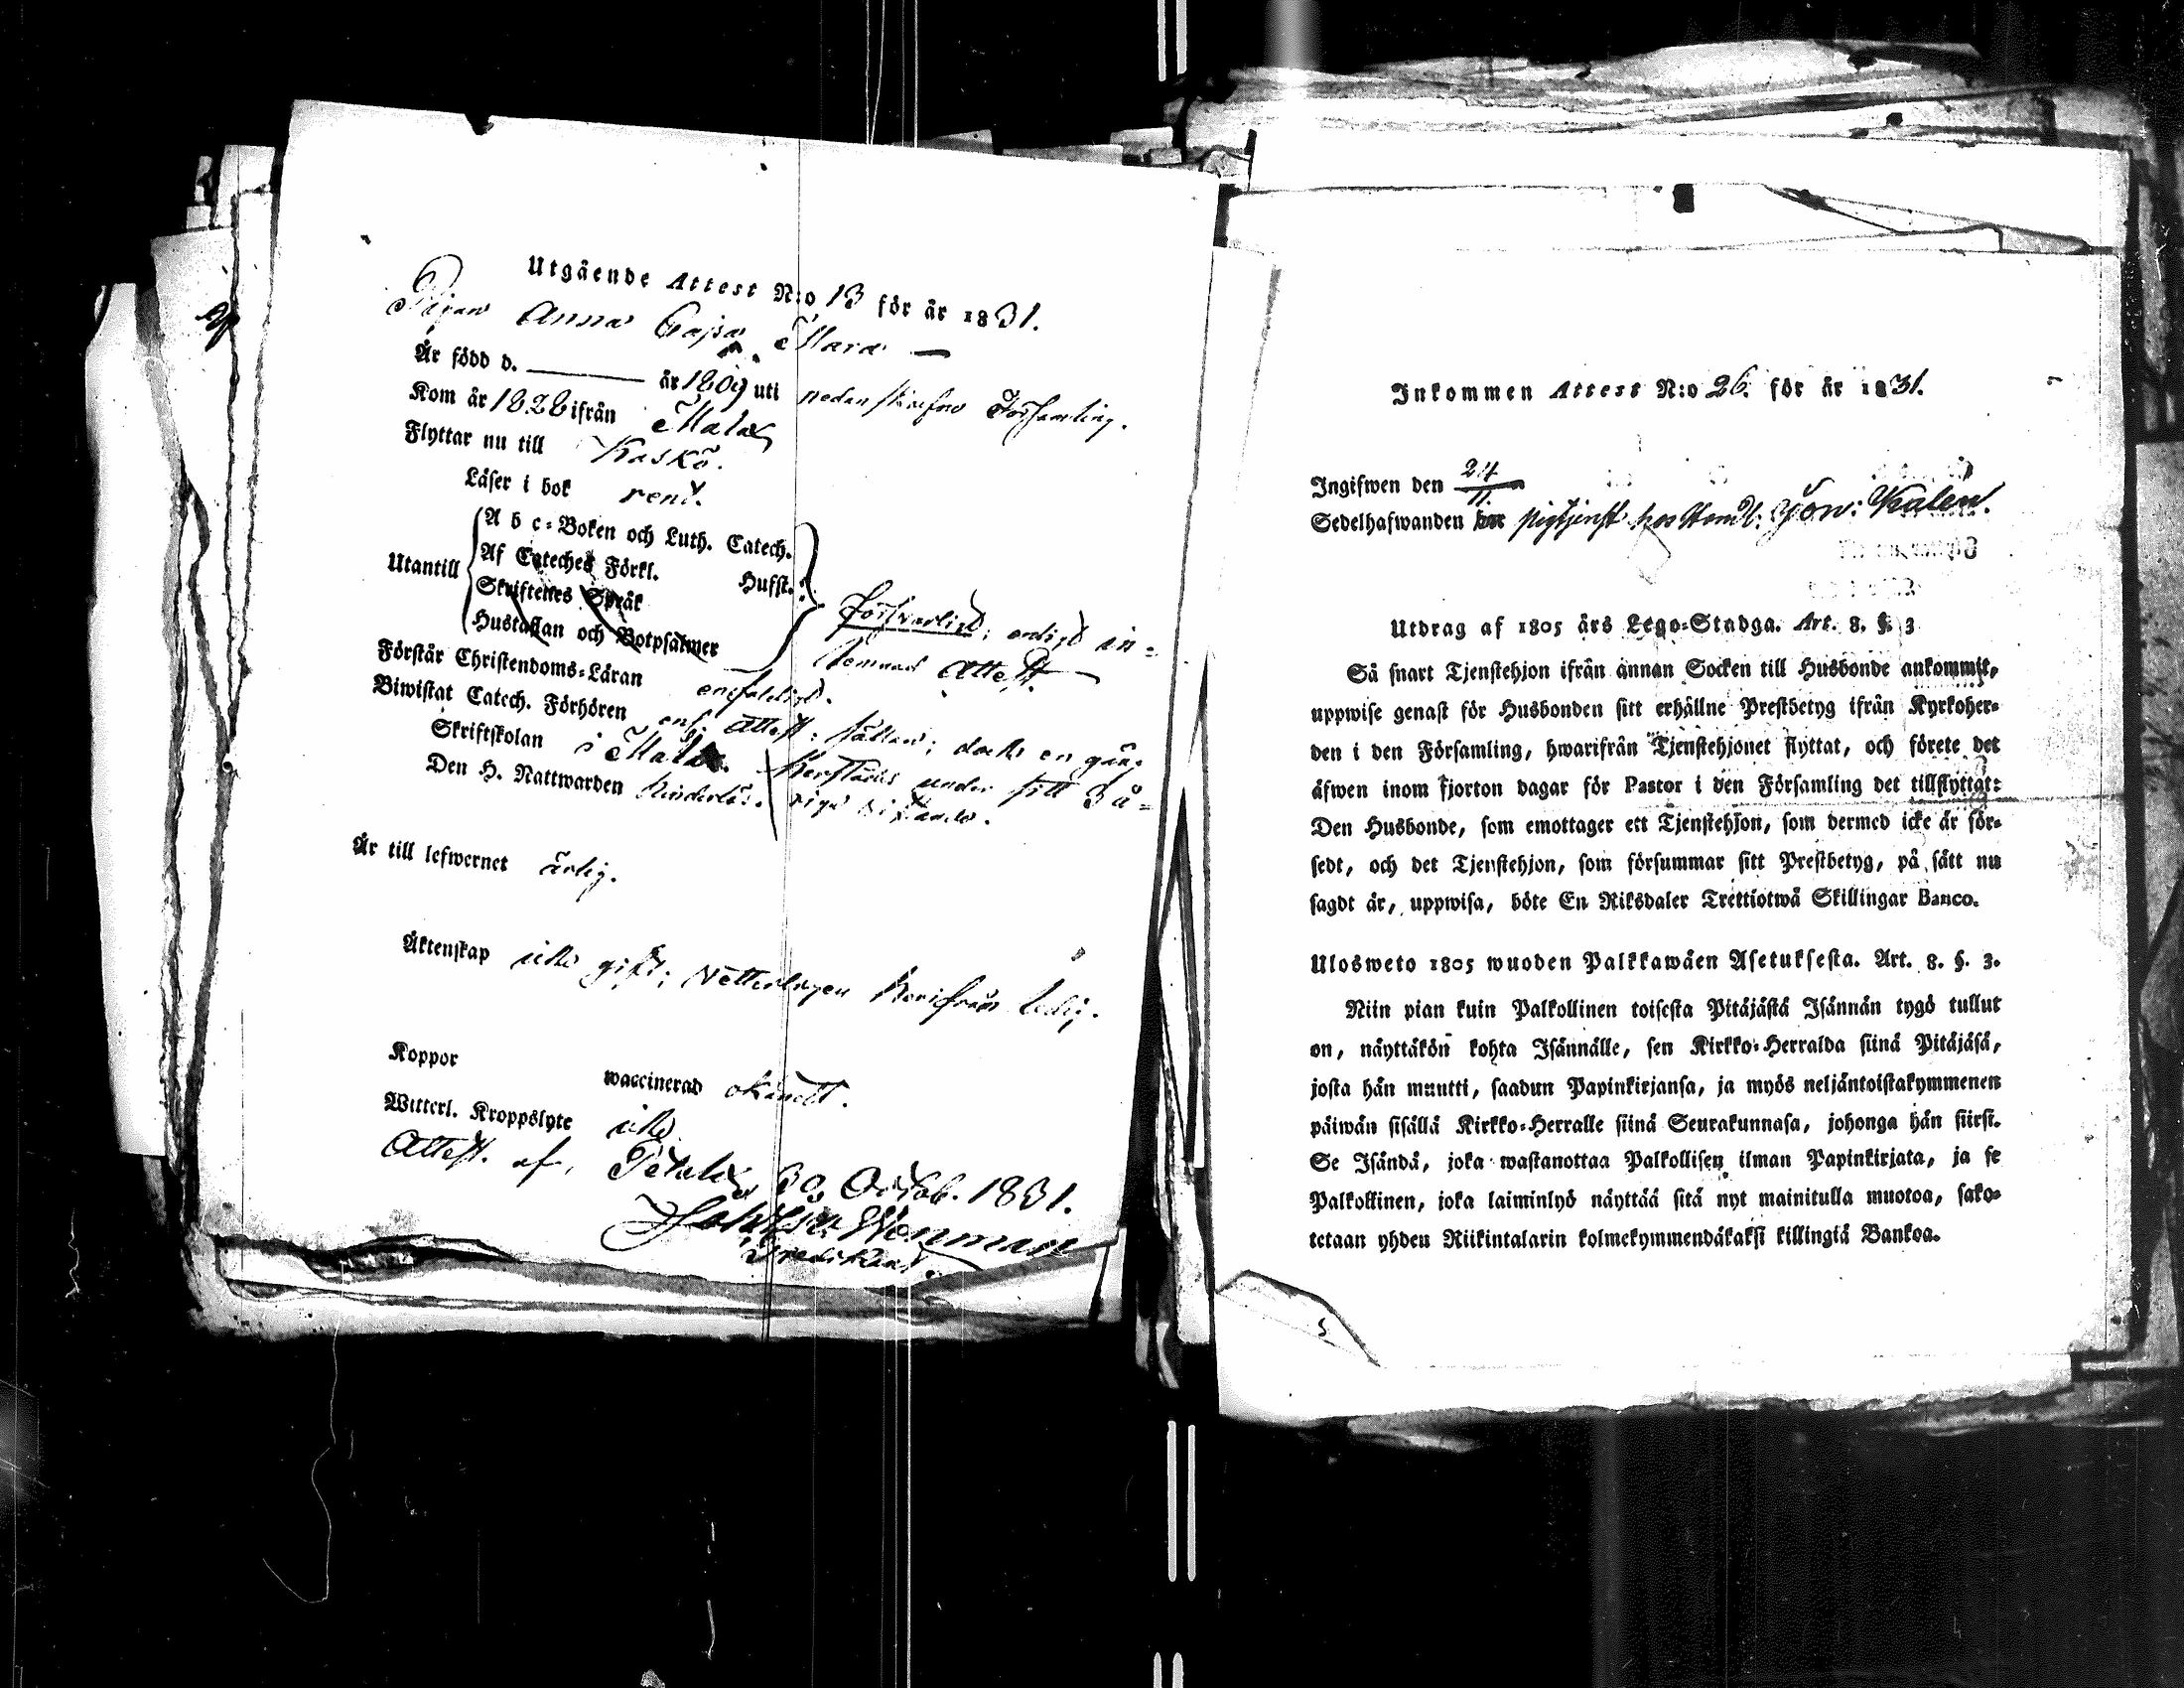 Utgående Attest N:o 13 för år 1831.
Pigan Anna Cajsa Mara —
Är född d. ——— år 1809 uti nedanskrefne Församling.
Kom år 1828 ifrån Malax
Flyttar nu till Kaskö.
Läser i bok rent.
Utantill
A b c-Boken och Luth. Catech.
Af Cateches Förkl. Hufst.
Skriftenes Språk
Hustaflan och Botpsalmer
försvarligt; enligt in-
lemnad Attest.
Förstår Christendoms-Läran enfaldigt.
Biwistat Catech. Förhören enl. Attest: sällan; dock en gång
Skriftskolan i Malax. härstädes under sitt 3 å-
Den H. Nattwarden hinderlös. rigt
Är till lefwernet ärlig.
Äktenskap icke gift; Wetterligen härifrån ledig.
Koppor waccinerad okändt.
Witterl. Kroppslyte icke
Attest. af, Petalax 30 Octob. 1831.
Wenman
Predikant.
Inkommen Attest N:o 26. för år 1831.
Ingifwen den 24/11.
Sedelhafwanden har pigtjenst hos Handl: Jon: Kalén.
Utdrag af 1805 års Lego-Stadga. Art. 8. §. 3
Så snart Tjenstehjon ifrån annan Socken till Husbonde ankommit,
uppwise genast för Husbonden sitt erhållne Prestbetyg ifrån Kyrkoher-
den i den Församling, hwarifrån Tjenstehjonet flyttat, och förete det
äfwen inom fjorton dagar för Pastor i den Församling det tillflyttat:
Den Husbonde, som emottager ett Tjenstehjon, som dermed icke är för-
sedt, och det Tjenstehjon, som försummar sitt Prestbetyg, på sätt nu
sagdt är, uppwisa, böte En Riksdaler Trettiotwå Skillingar Banco.
Ulosweto 1805 wuoden Palkkawäen Asetuksesta. Art. 8. §. 3.
Niin pian kuin Palkollinen toisesta Pitäjästä Isännän tygö tullut
on, näyttäkön kohta Isännälle, sen Kirkko-Herralda siinä Pitäjäsä,
josta hän muutti, saadun Papinkirjansa, ja myös neljäntoistakymmenen
päiwän sisällä Kirkko-Herralle siinä Seurakunnasa, johonga hän siirst.
Se Isändä, joka wastanottaa Palkollisen ilman Papinkirjata, ja se
Palkollinen, joka laiminlyö näyttää sitä nyt mainitulla muotoa, sako-
tetaan yhden Riikintalarin kolmekymmendäkaksi killingiä Bankoa.